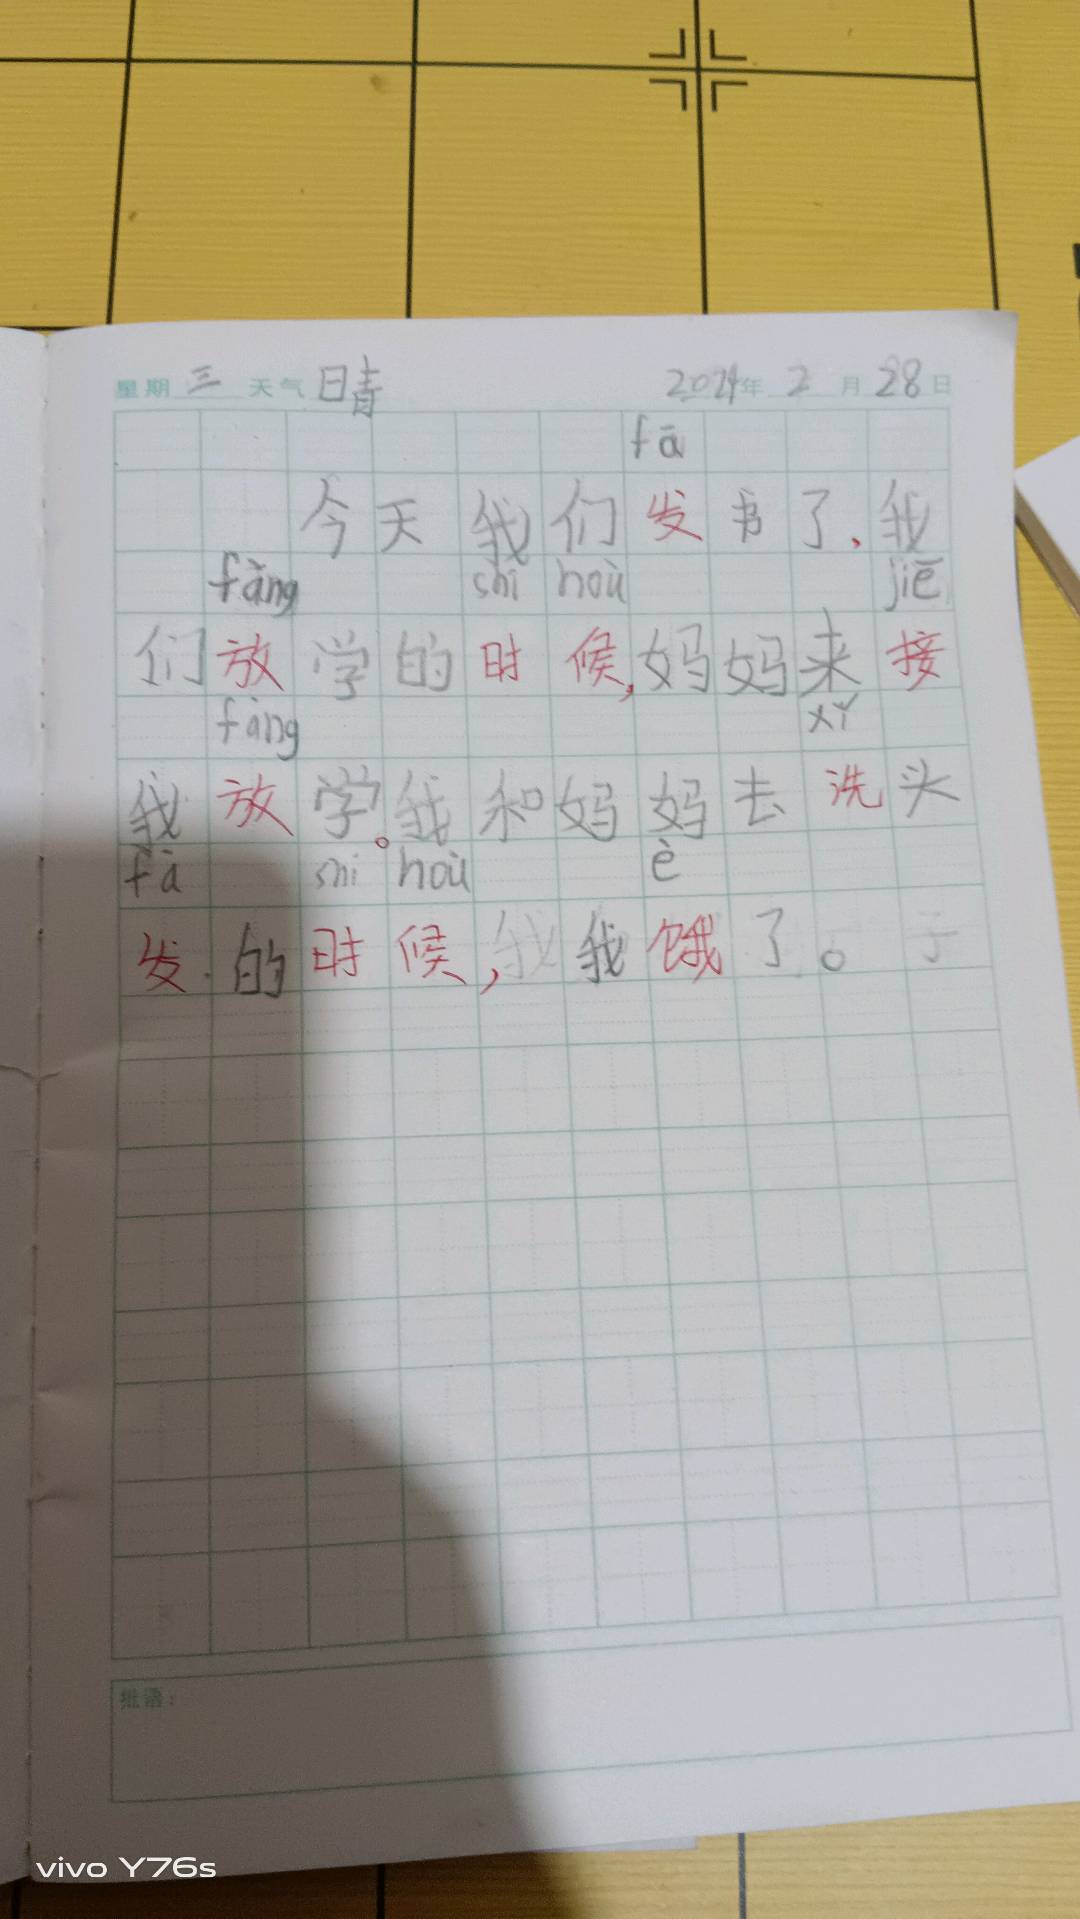 星期 三 天气 晴 2024年 2 月 28 日
fā
今天我们发书了,我
fàng shí hoù jiē
们放学的时候,妈妈来接
fàng xǐ
我放学。我和妈妈去洗头
fà shí hoù è
发的时候,我我饿了。子
批语:
vivo Y76s